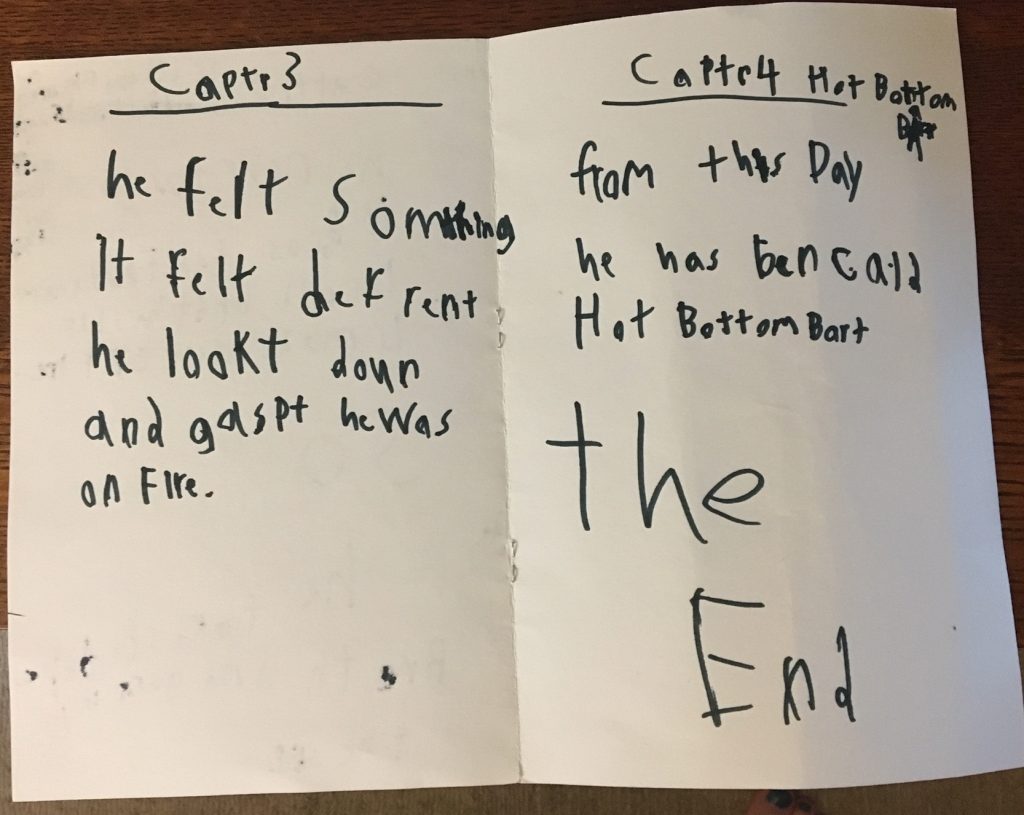 Captr 3
he felt Somthing
It felt defrent
he lookt doun
and gaspt he Was
on FIre.
Captr 4 Hot Bottom
from this Day
he has ben calld
Hot Bottom Bart
the
End